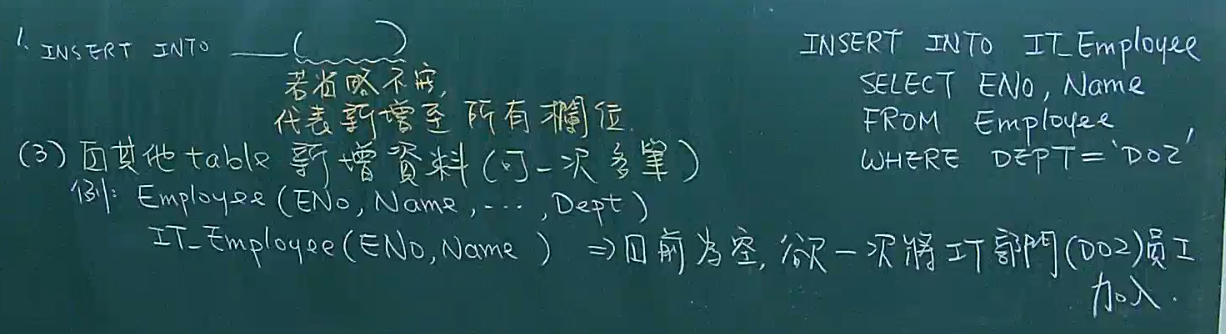 1. INSERT INTO ___(      )
若省略不寫,
代表新增至所有欄位.
(3) 由其他table 新增資料(可一次多筆)
例: Employee(ENo, Name, ..., Dept)
IT_Employee(ENo, Name ) ⇒目前為空, 欲一次將IT部門(D02)員工
加入.
INSERT INTO IT_Employee
SELECT ENo, Name
FROM Employee
WHERE DEPT='D02'